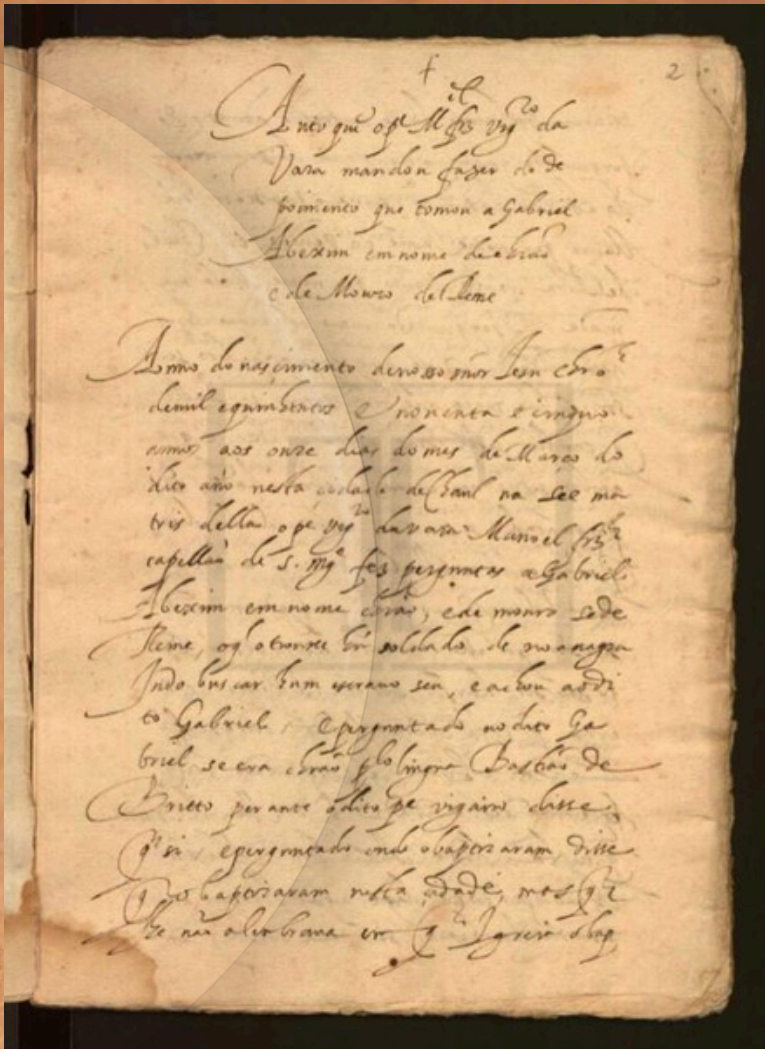 2
Auto que o pe M.el frz vigro da
Vara mandou fazer do de
poimento que tomou a Gabriel
Abexim em nome de chrão
e de Mouro del Leme
Anno do nascimento de nosso snor Jesu Chro
de mil e quinhentos e nouenta e cinquo
annos aos onze dias do mes de Março do
dito ano nesta cidade de Chaul na see ma
tris della o pe vigro da vara Manoel frz
capellão de S. Mgde fes perguntas a Gabriel
Abexim em nome chrão, e de mouro
o q o trouxe hũ soldado de
Indo buscar hum escrauo seu, e achou ao di
to Gabriel, e perguntado ao dito Ga
briel se era chrão plo lingua Bastião de
Britto perante o dito pe vigairo disse
q si, e perguntado onde o baptizaram, disse
q o baptizaram nesta cidade, mas q
lhe não alembraua em q Igreia o bap